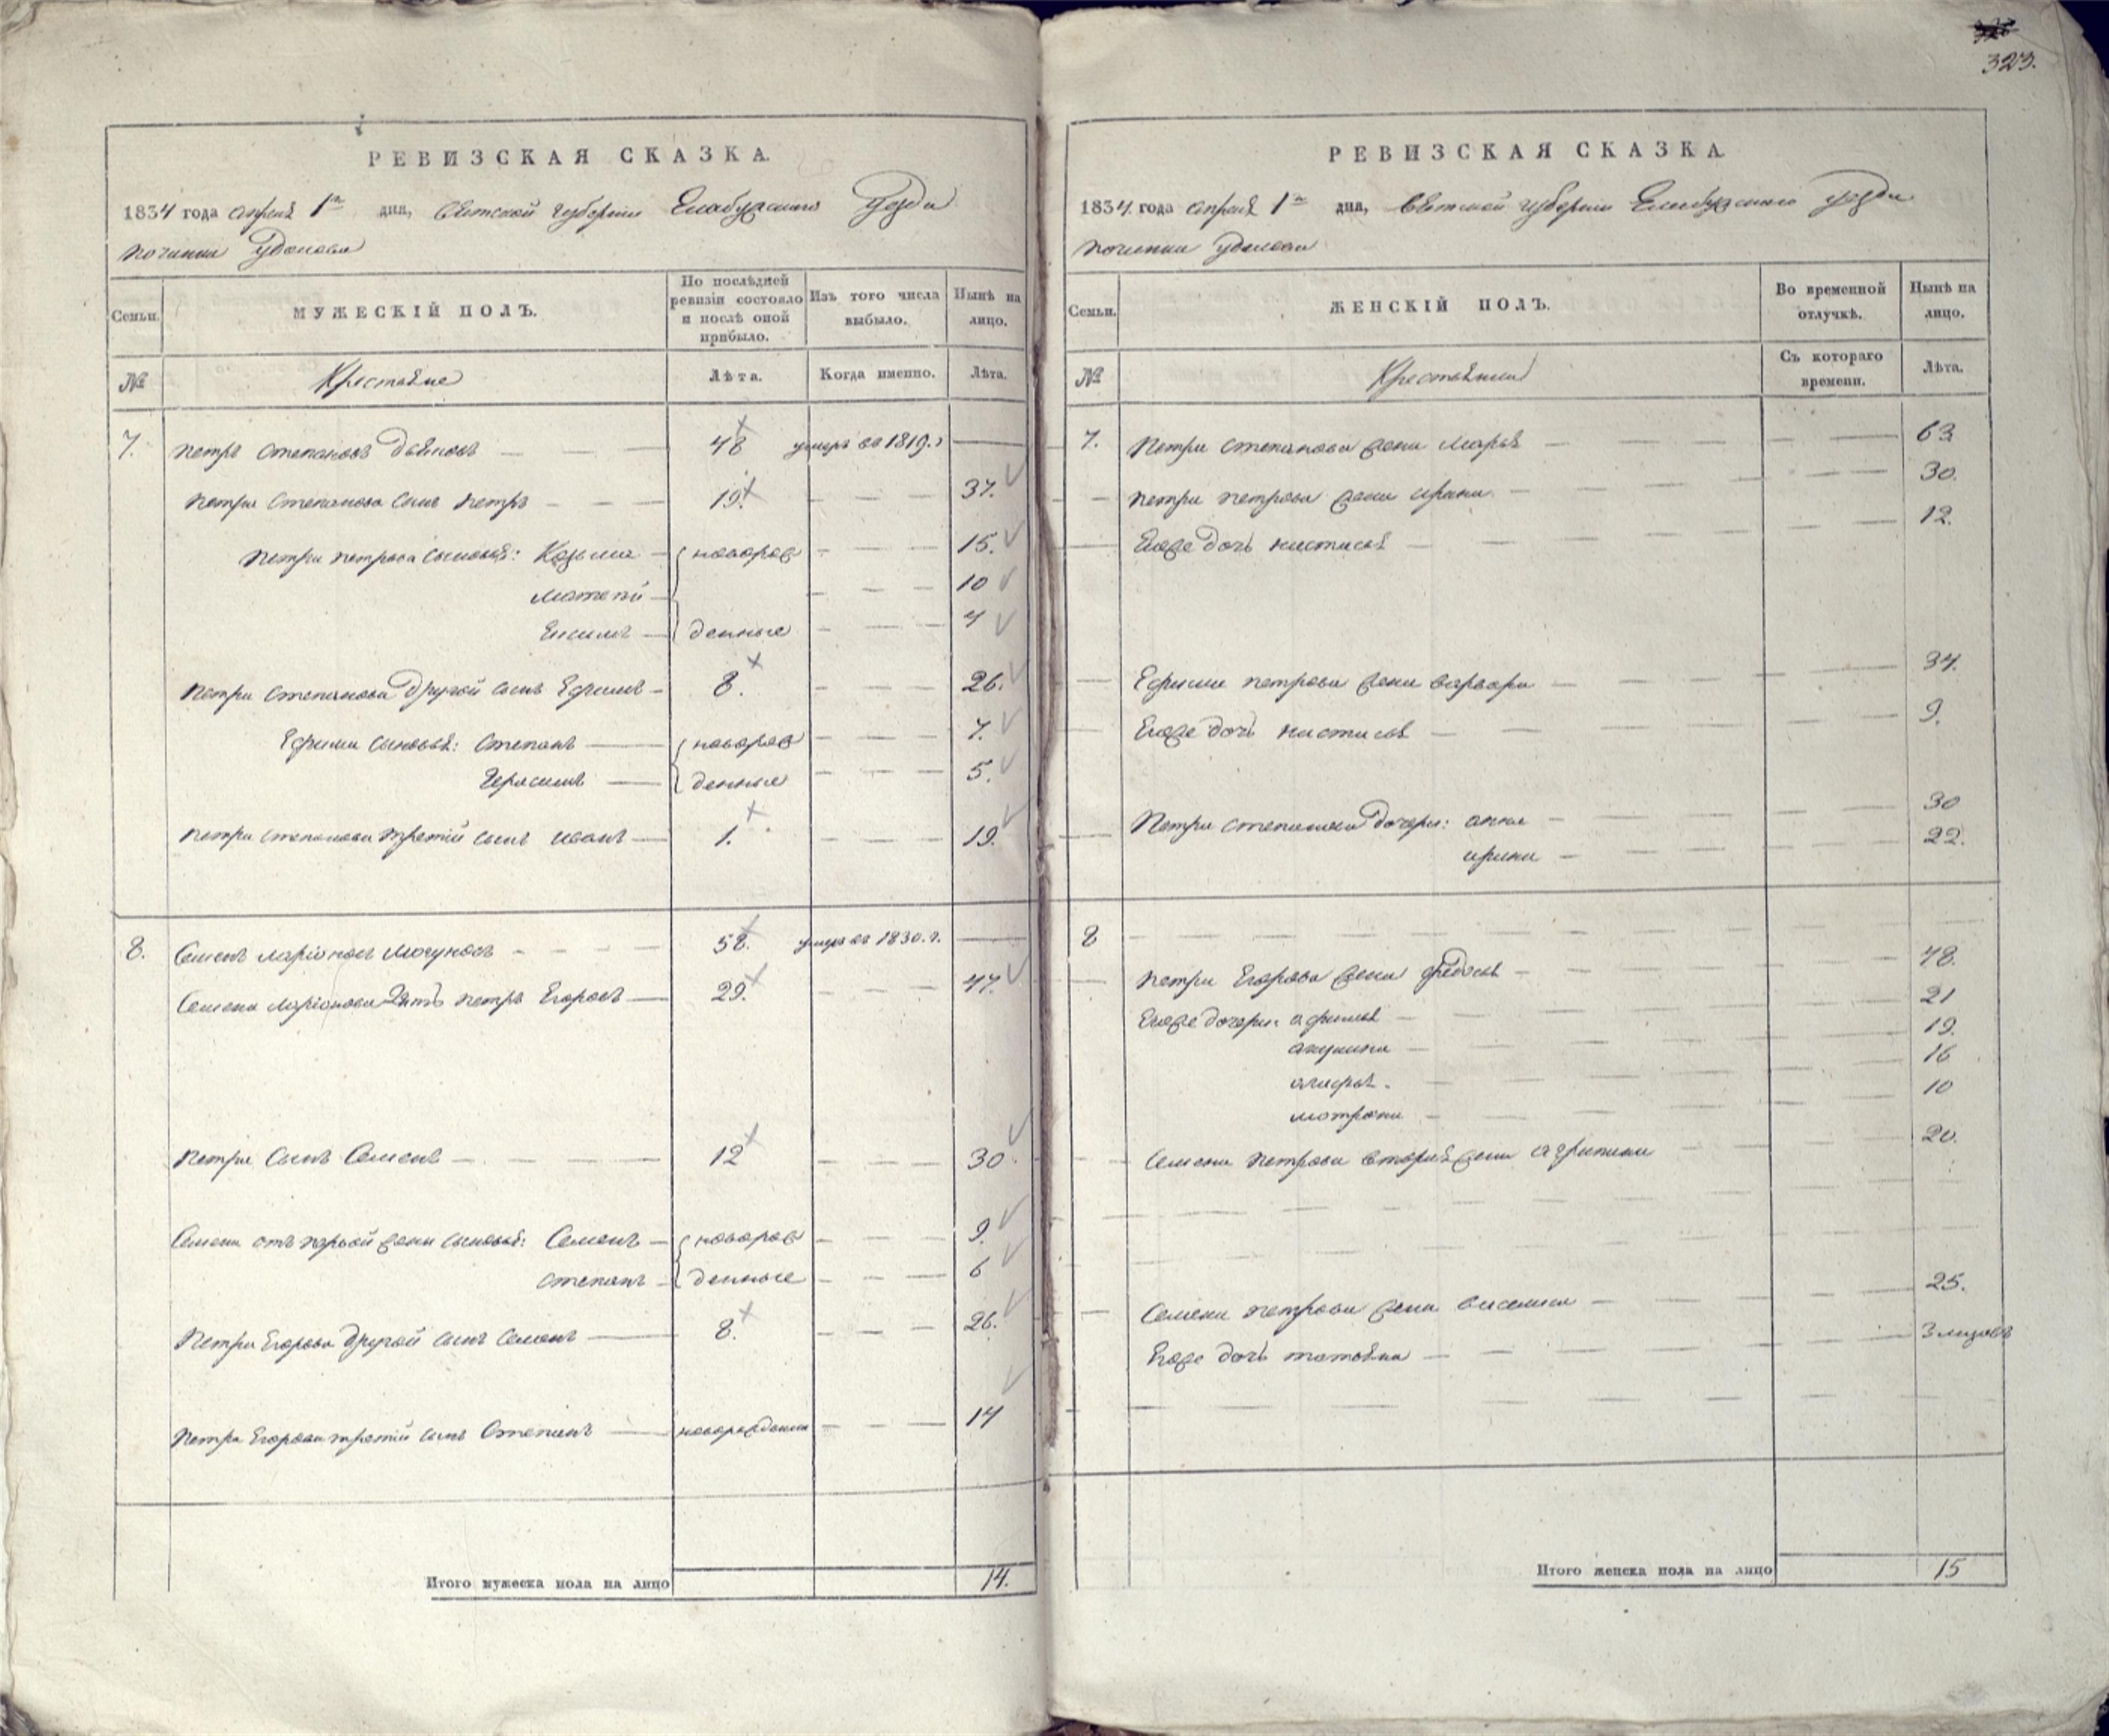 323.
РЕВИЗСКАЯ СКАЗКА.
1834 года апреля 1го дня, Вятской губернии Елабужского уезда
починка Удалова
Семьи. МУЖЕСКІЙ ПОЛЪ. По послѣдней ревизіи состояло и послѣ оной прибыло. Изъ того числа выбыло. Нынѣ на лицо.
№ Крестьяне Лѣта. Когда именно. Лѣта.
7. Петръ Степановъ 48 умеръ въ 1819. г
Петра Степанова сынъ Петръ 19. 37.
Петра Петрова сыновья: Козьма новорож 15.
Матвей 10
денные 4
Петра Степанова другой сынъ Ефимъ 8. 26.
Ефима сыновья: Степанъ новорож 7.
Герасимъ денные 5.
Петра Степанова третій сынъ Иванъ 1. 19.
8. Семенъ Ларіоновъ 58. умеръ въ 1830. г.
Семена Ларіонова зять Петръ Егоровъ 29. 47.
Петра сынъ Семенъ 12 30.
Семена отъ первой жены сыновья: Семенъ новорож 9.
Степанъ денные 6
Петра Егорова другой сынъ Семенъ 8. 26.
Петра Егорова третій сынъ Степанъ новорожденной 14
Итого мужеска пола на лицо 14.
РЕВИЗСКАЯ СКАЗКА.
1834. года апреля 1го дня, Вятской губернии Елабужского уезда
починка Удалова
Семьи. ЖЕНСКІЙ ПОЛЪ. Во временной отлучкѣ. Нынѣ на лицо.
№ Крестьянки Съ котораго времени. Лѣта.
7. Петра Степанова жена Марья 63
Петра Петрова жена Ирина 30.
Егоже дочь Настасья 12.
Ефима Петрова жена Варвара 34.
Егоже дочь Настасья 9.
Петра Степанова дочери: Анна 30
Ирина 22.
8
Петра Егорова жена Федосья 48.
Егоже дочери: Афимья 21
Акулина 19.
16
Матрена 10
Семена Петрова вторая жена Агрипина 20.
Семена Петрова жена Василиса 25.
Егоже дочь Татьяна 3 месяцовъ
Итого женска пола на лицо 15